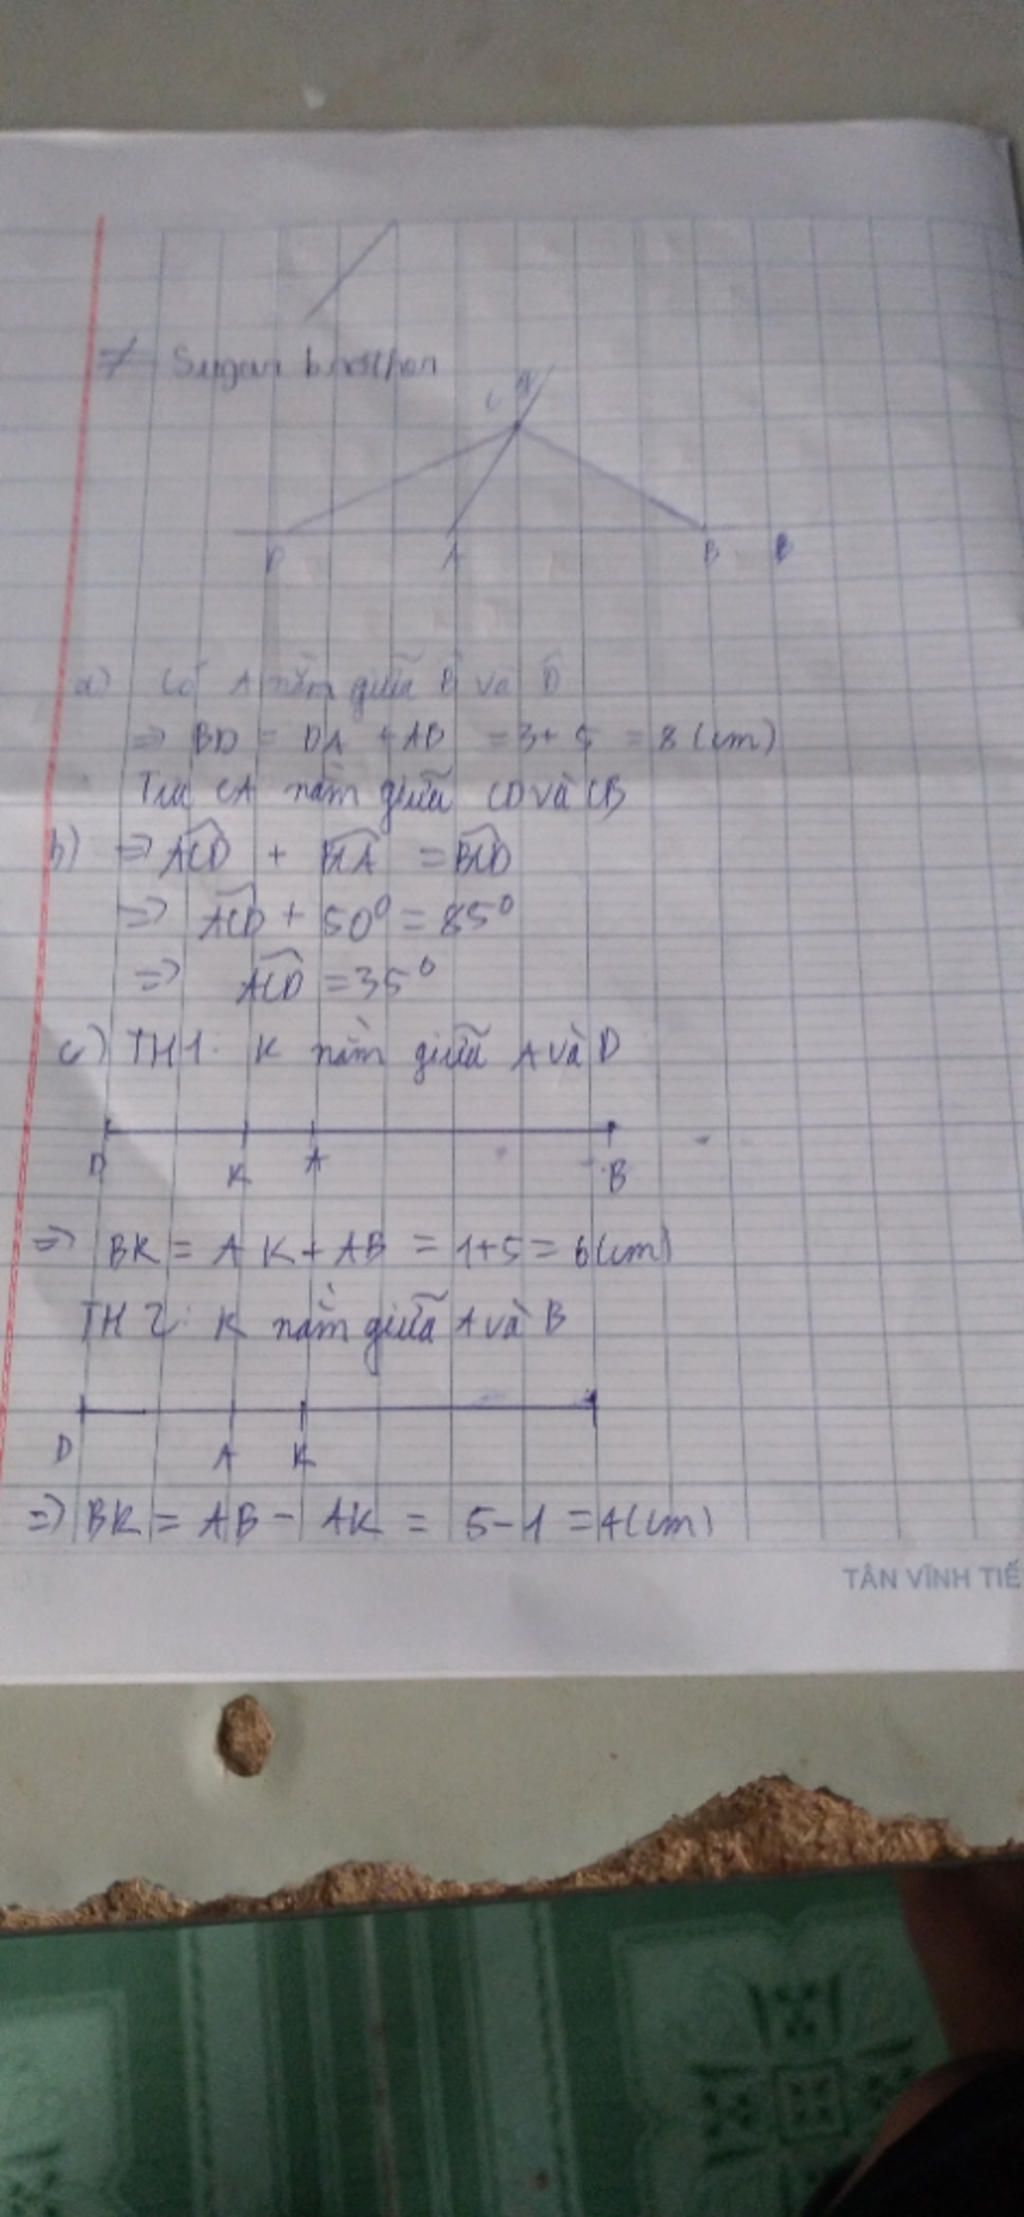 C
D A B
a) Có A nằm giữa B và D
=> BD = DA + AB = 3+ 5 = 8 (cm)
Tia CA nằm giữa CD và CB
b) => ACD + BCA = BCD
=> ACD + 50° = 85°
=> ACD = 35°
c) TH1: K nằm giữa A và D
D K A B
=> BK = AK + AB = 1+5 = 6(cm)
TH2: K nằm giữa A và B
D A K
=> BK = AB - AK = 5-1 = 4(cm)
TÂN VĨNH TIẾ